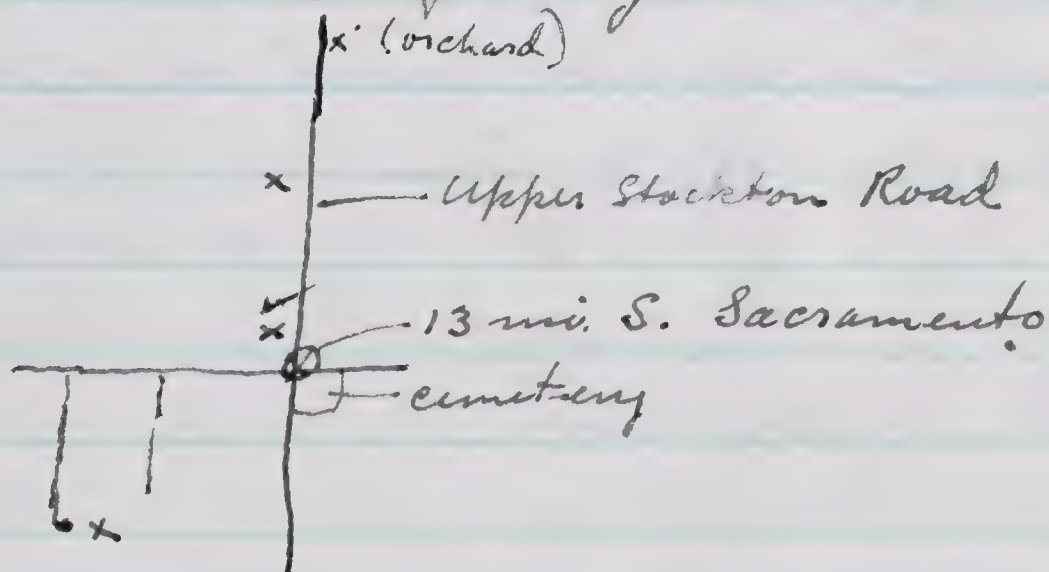 x (orchard)
x
Upper Stockton Road
13 mi. S. Sacramento.
x
cemetery
x